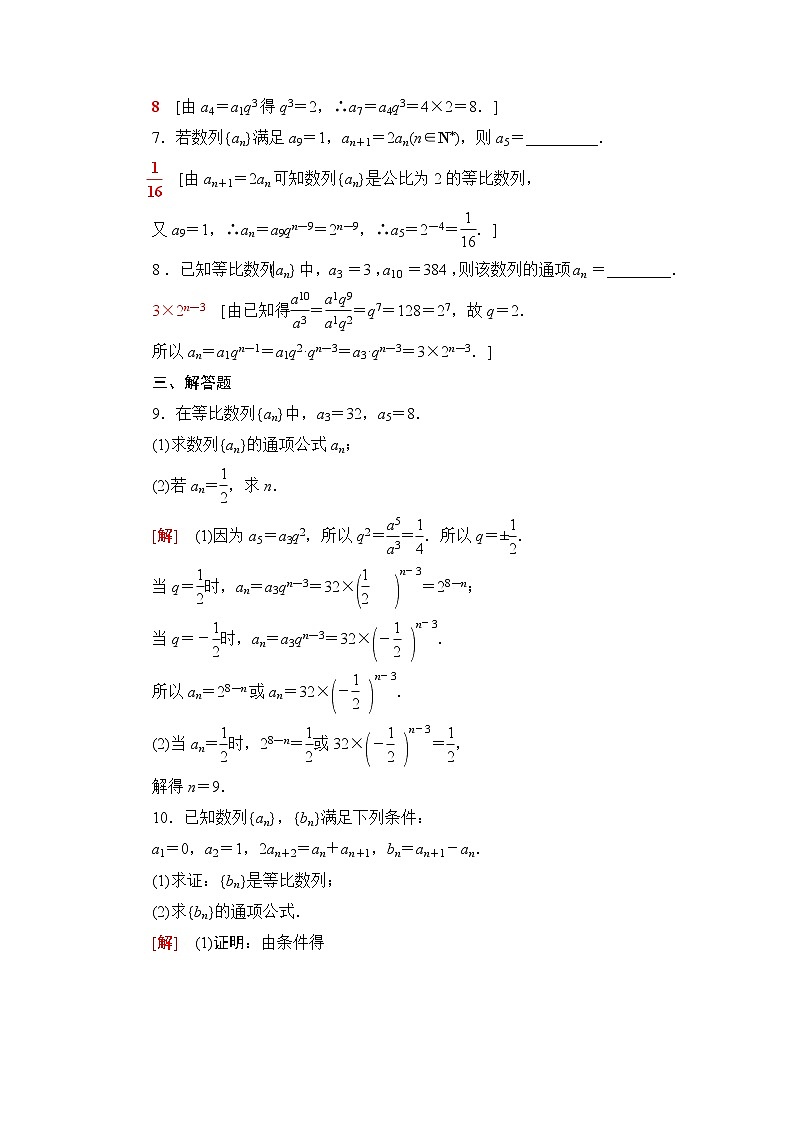 8 [由 a4=a1q3得 q3=2,∴a7=a4q3=4×2=8.]
7.若数列{an}满足 a9=1,an+1=2an(n∈N*),则 a5=________.
1/16 [由 an+1=2an可知数列{an}是公比为 2 的等比数列,
又 a9=1,∴an=a9qn-9=2n-9,∴a5=2-4=1/16.]
8.已知等比数列{an}中,a3=3,a10=384,则该数列的通项 an=________.
3×2n-3 [由已知得a10/a3=a1q9/a1q2=q7=128=27,故 q=2.
所以 an=a1qn-1=a1q2·qn-3=a3·qn-3=3×2n-3.]
三、解答题
9.在等比数列{an}中,a3=32,a5=8.
(1)求数列{an}的通项公式 an;
(2)若 an=1/2,求 n.
[解] (1)因为 a5=a3q2,所以 q2=a5/a3=1/4.所以 q=±1/2.
当 q=1/2时,an=a3qn-3=32×(1/2)n-3=28-n;
当 q=-1/2时,an=a3qn-3=32×(-1/2)n-3.
所以 an=28-n或 an=32×(-1/2)n-3.
(2)当 an=1/2时,28-n=1/2或 32×(-1/2)n-3=1/2,
解得 n=9.
10.已知数列{an},{bn}满足下列条件:
a1=0,a2=1,2an+2=an+an+1,bn=an+1-an.
(1)求证:{bn}是等比数列;
(2)求{bn}的通项公式.
[解] (1)证明:由条件得